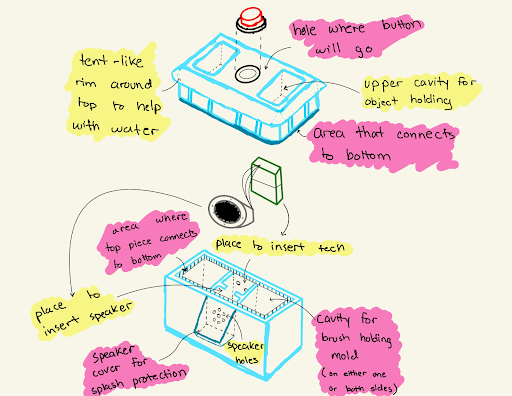 hole where button
will go
tent-like
rim around
top to help
with water
upper cavity for
object holding
area that connects
to bottom
area where
top piece connects
to bottom
place to insert tech
place to
insert speaker
speaker
cover for
splash protection
speaker
holes
cavity for
brush holding
mold
(on either one
or both sides)